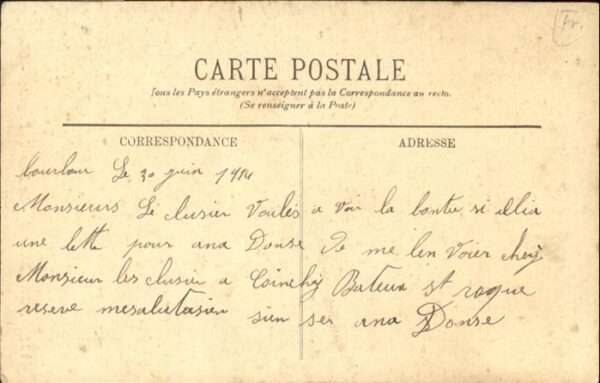 Fr.
CARTE POSTALE
Tous les Pays étrangers n'acceptent pas la Correspondance au recto.
(Se renseigner à la Poste)
CORRESPONDANCE
ADRESSE
Le 30 juin 1914
Monsieurs Lé clusier Voulés a voir la bontu si illia
une lette pour ana Donse de me len voier cheij
Monsieur les clusier a Coinchij Bateux st roque
reserve mesalutasien sien ser ana Donse